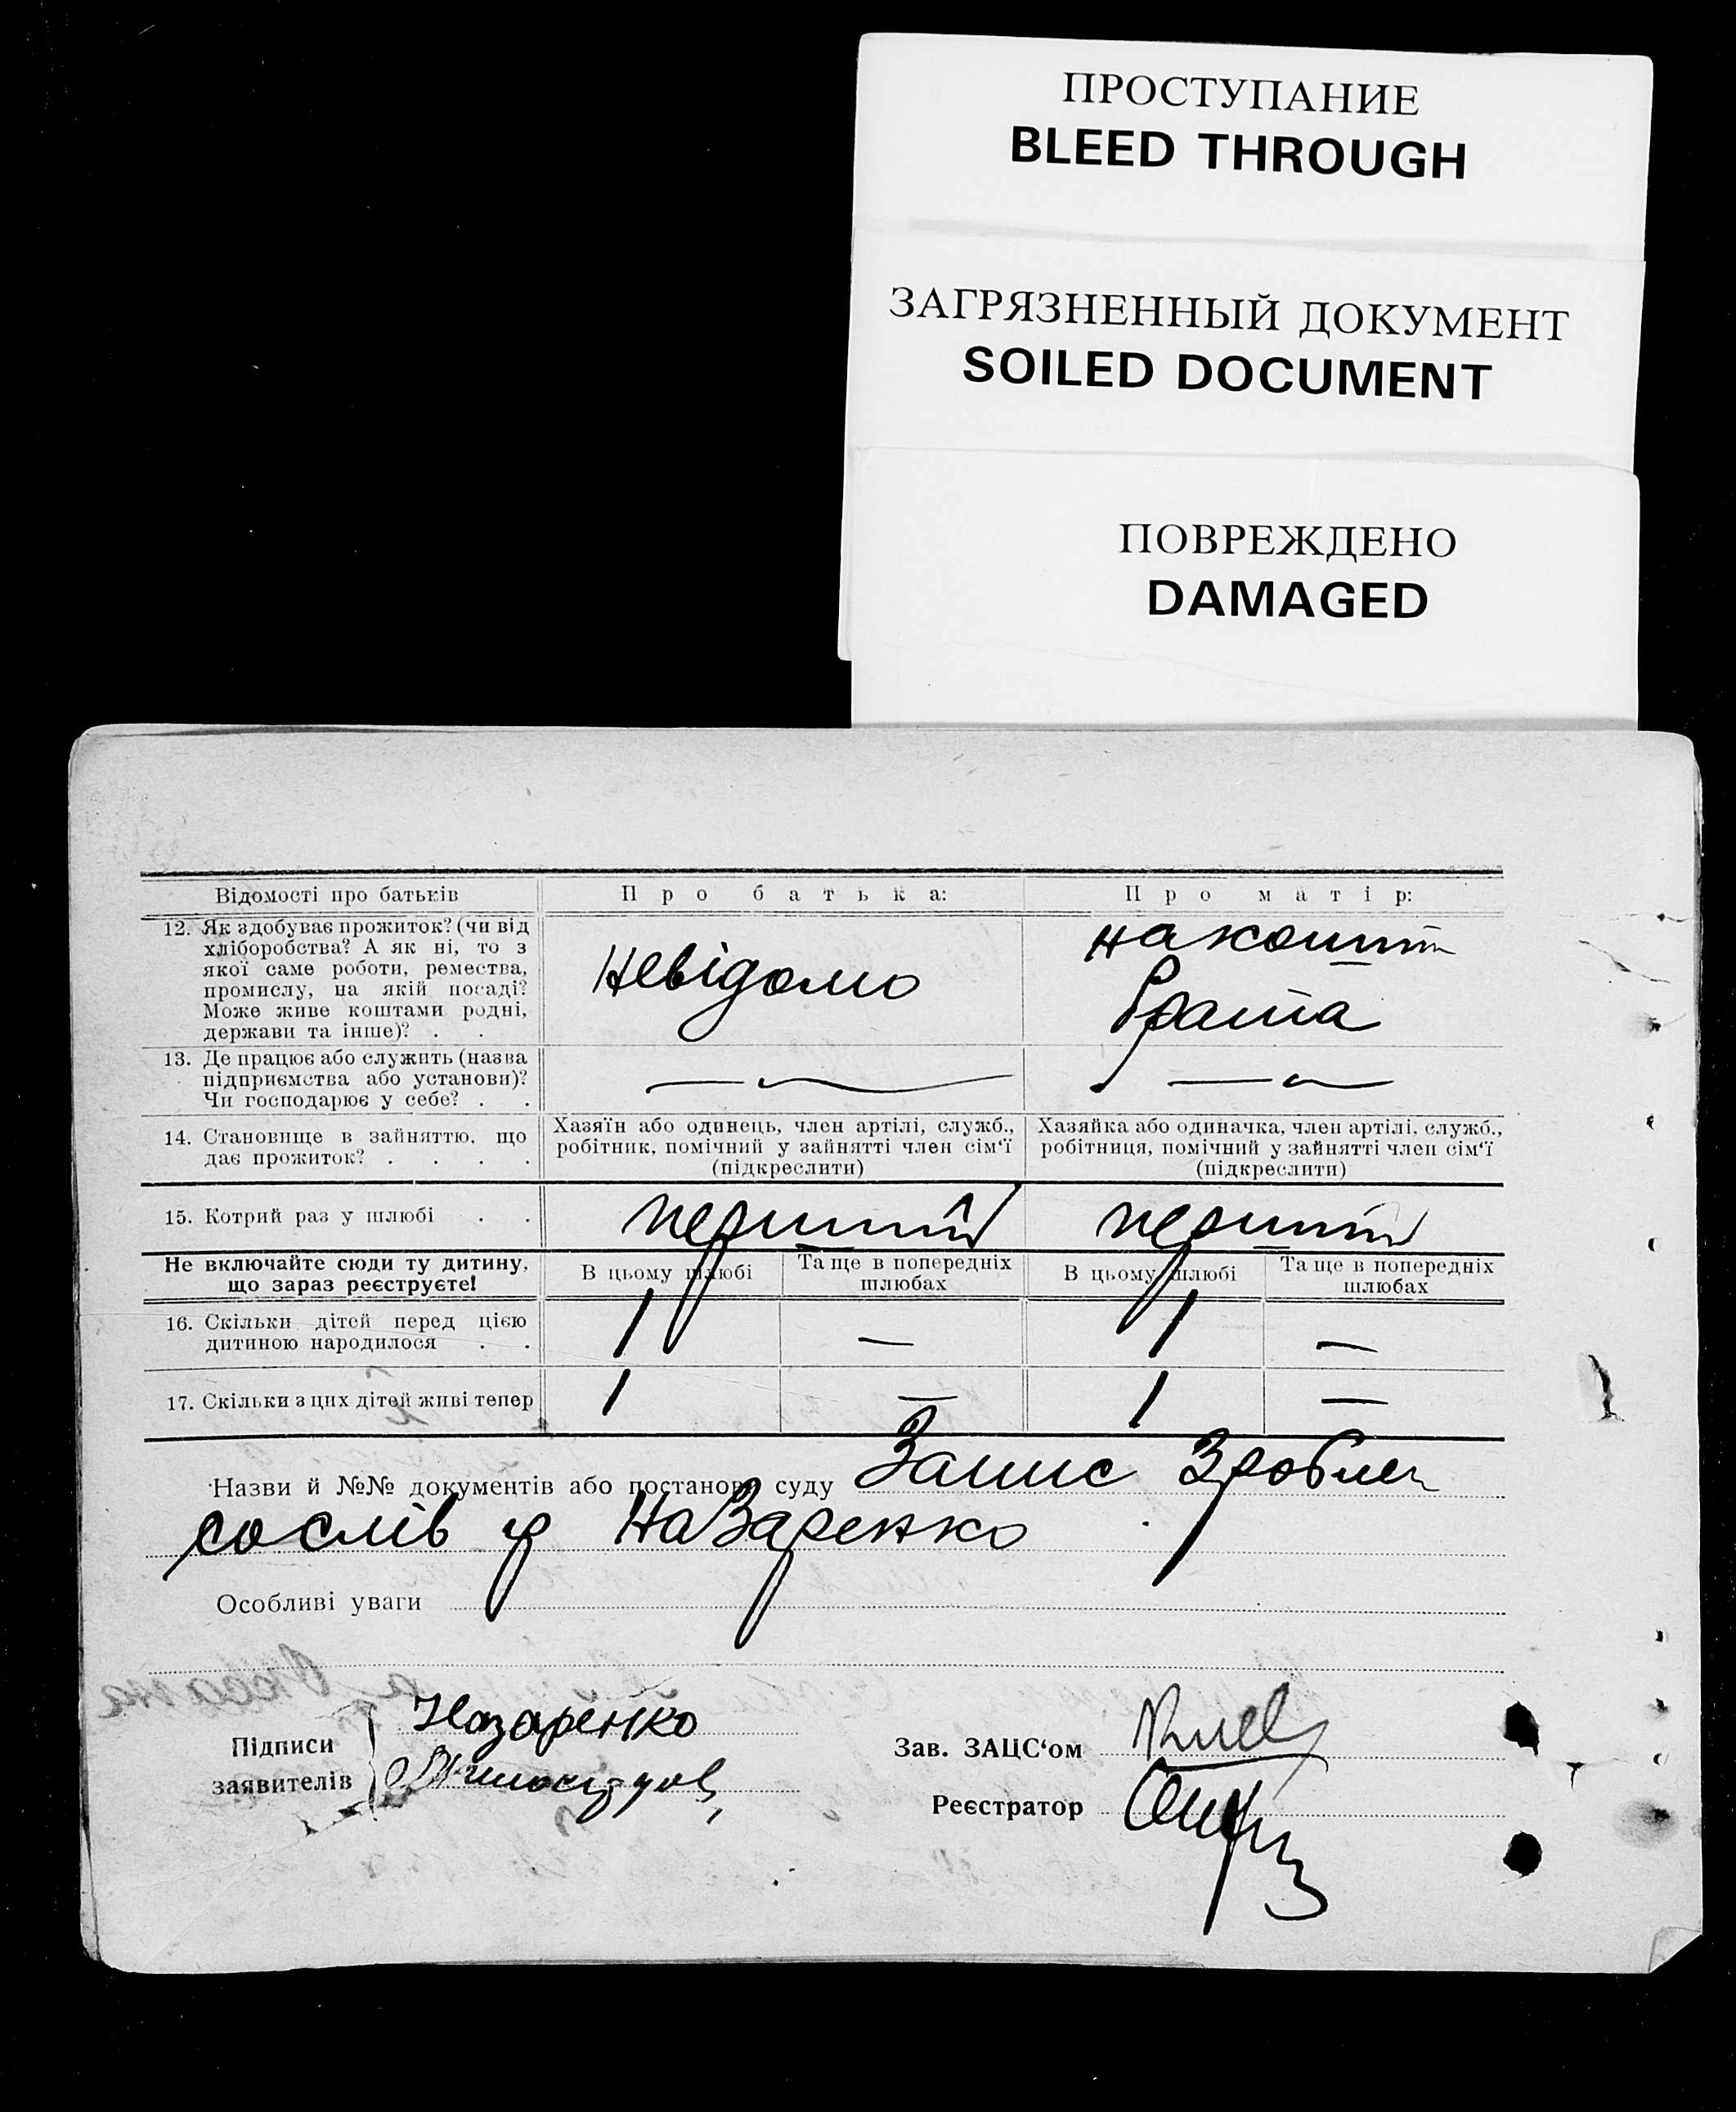 ПРОСТУПАНИЕ
BLEED THROUGH
ЗАГРЯЗНЕННЫЙ ДОКУМЕНТ
SOILED DOCUMENT
ПОВРЕЖДЕНО
DAMAGED
Відомості про батьків
Про батька:
Про матір:
12. Як здобуває прожиток? (чи від
хліборобства? А як ні, то з
якої саме роботи, ремества,
промислу, на якій посаді?
Може живе коштами родні,
держави та інше)? . .
Невідомо
на кошти
брата
13. Де працює або служить (назва
підприємства або установи)?
Чи господарює у себе? . .
14. Становище в зайняттю, що
дає прожиток? . . . .
Хазяїн або одинець, член артілі, служб.,
робітник, помічний у зайнятті член сім‘ї
(підкреслити)
Хазяйка або одиначка, член артілі, служб.,
робітниця, помічний у зайнятті член сім‘ї
(підкреслити)
15. Котрий раз у шлюбі . .
перший
перший
Не включайте сюди ту дитину,
що зараз реєструєте!
В цьому шлюбі
Та ще в попередніх
шлюбах
В цьому шлюбі
Та ще в попередніх
шлюбах
16. Скільки дітей перед цією
дитиною народилося . .
1 — 1 —
17. Скільки з цих дітей живі тепер
1 — 1 —
Назви й №№ документів або постанови суду Запис Зроблен
со слів гр Назаренко
Особливі уваги
Підписи
заявителів
Назаренко
Зав. ЗАЦС‘ом
Реєстратор